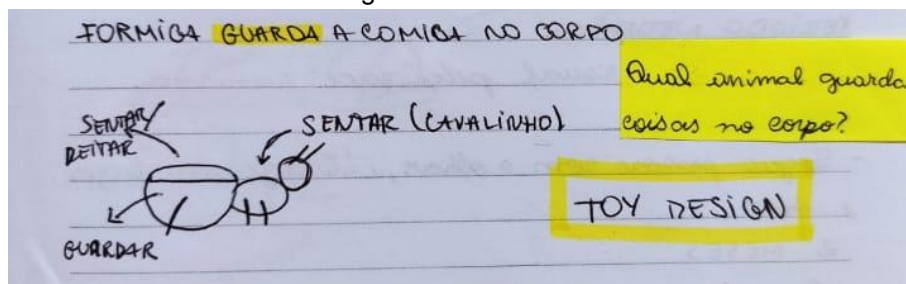 FORMIGA GUARDA A COMIDA NO CORPO
Qual animal guarda
coisas no corpo?
SENTAR/
DEITAR
SENTAR (CAVALINHO)
TOY DESIGN
GUARDAR